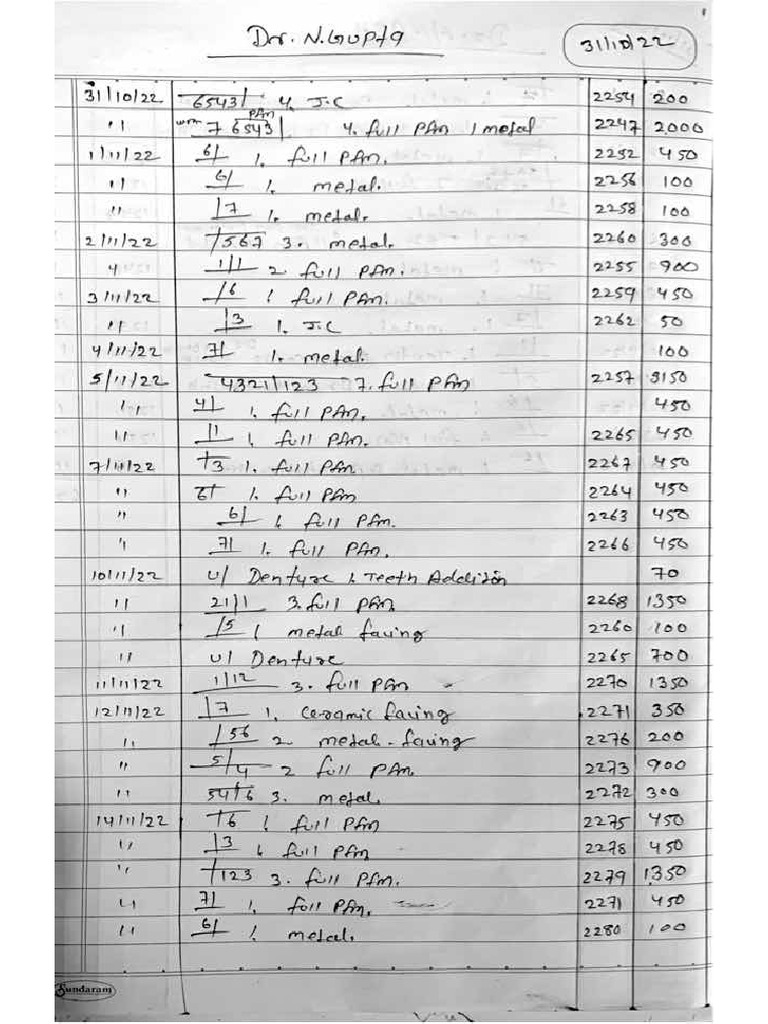 Dr. N. Gupta 31/10/22
31/10/22 6543/ 4. J.C 2254 200
" PFM
7 6543/ 4. full PFM 1 metal 2247 2000
1/11/22 6/ 1. full PFM. 2252 450
" 6/ 1. metal. 2256 100
" /7 1. metal. 2258 100
2/11/22 /567 3. metal. 2260 300
" 1/1 2 full PFM. 2255 900
3/11/22 /6 1 full PFM. 2259 450
" /3 1. J.C 2262 50
4/11/22 7/ 1. metal. 100
5/11/22 4321/123 7. full PFM 2257 3150
" 4/ 1. full PFM. 450
" /1 1. full PFM. 2265 450
7/11/22 /3 1. full PFM 2267 450
" 6/ 1. full PFM 2264 450
" 6/ 1. full PFM. 2263 450
" 7/ 1. full PFM. 2266 450
10/11/22 u/ Denture 1. Teeth Addition 70
" 21/1 3. full PFM 2268 1350
" /5 1 metal facing 2260 100
" u/ Denture 2265 700
11/11/22 1/12 3. full PFM 2270 1350
12/11/22 /7 1. ceramic facing 2271 350
" /56 2 metal-facing 2276 200
" 5/4 2 full PFM. 2273 900
" 54/6 3. metal. 2272 300
14/11/22 /6 1 full PFM 2275 450
" /3 1. full PFM 2278 450
" /123 3. full PFM. 2279 1350
" 7/ 1. full PFM. 2271 450
" 6/ 1. metal. 2280 100
Sundaram